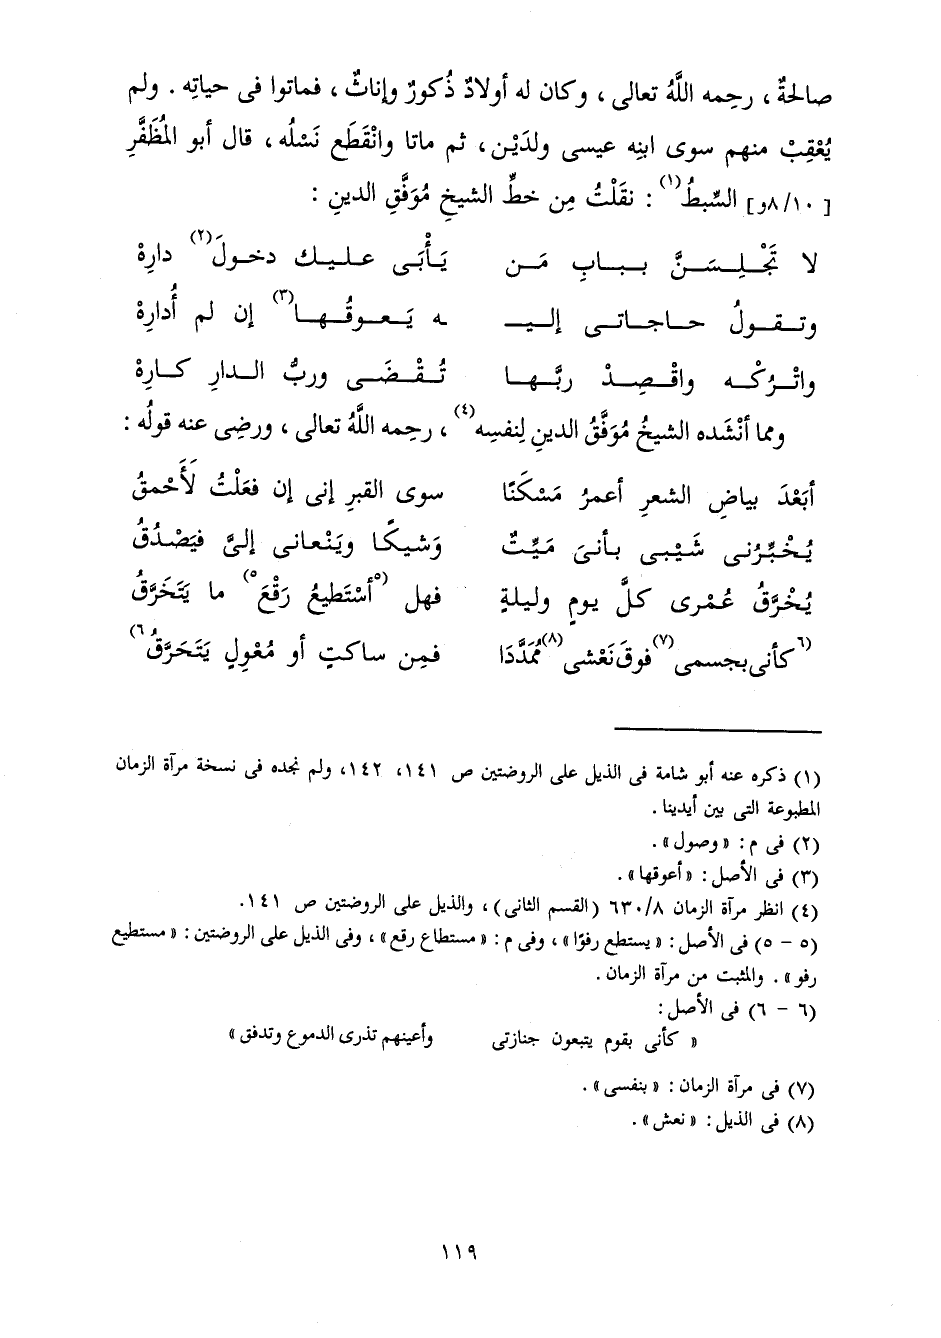 صالحةٌ ، رحِمه اللَّهُ تعالى ، وكان له أولادٌ ذُكورٌ وإناثٌ ، فماتوا فى حياتِه . ولم
يُعْقِبْ منهم سوى ابنِه عيسى ولدَيْن ، ثم ماتا وانْقَطَع نَسْلُه ، قال أبو المُظَفَّرِ
[ ٨/١٠و] السِّبطُ(١) : نقَلْتُ مِن خطِّ الشيخِ مُوَفَّقِ الدينِ :
لا تَجْلِسَنَّ ببابِ مَن يَأْبَى عليك دخولَ(٢) دارِهْ
وتقولُ حاجاتى إليـ ـه يَعوقُها(٣) إن لم أُدارِهْ
واتْرُكْه واقْصِدْ ربَّها تُقْضَى وربُّ الدارِ كارِهْ
ومما أنْشَده الشيخُ مُوَفَّقُ الدينِ لِنفسِه(٤) ، رحِمه اللَّهُ تعالى ، ورضِى عنه قولُه :
أبَعْدَ بياضِ الشعرِ أعمرُ مَسْكَنًا سوى القبرِ إنى إن فعَلْتُ لَأَحْمقُ
يُخْبِّرُنى شَيْبى بأنىَ مَيِّتٌ وَشيكًا ويَنْعانى إلىَّ فيَصْدُقُ
يُخَرَّقُ عُمْرى كلَّ يومٍ وليلةٍ فهل (٥أسْتَطيعُ رَقْعَ٥) ما يَتَخَرَّقُ
(٦كأنى بجسمى(٧) فوقَ نَعْشى(٨) مُمَدَّدَا فمِن ساكتٍ أو مُعْوِلٍ يَتَحَرَّقُ٦)
(١) ذكره عنه أبو شامة فى الذيل على الروضتين ص ١٤١، ١٤٢، ولم نجده فى نسخة مرآة الزمان
المطبوعة التى بين أيدينا .
(٢) فى م : « وصول » .
(٣) فى الأصل : « أعوقها » .
(٤) انظر مرآة الزمان ٦٣٠/٨ (القسم الثانى) ، والذيل على الروضتين ص ١٤١.
(٥ - ٥) فى الأصل : « يستطع رفوًا » ، وفى م : « مستطاع رقع » ، وفى الذيل على الروضتين : « مستطيع
رفو » . والمثبت من مرآة الزمان .
(٦ - ٦) فى الأصل :
« كأنى بقوم يتبعون جنازتى وأعينهم تذرى الدموع وتدفق »
(٧) فى مرآة الزمان : « بنفسى » .
(٨) فى الذيل : « نعش » .
١١٩